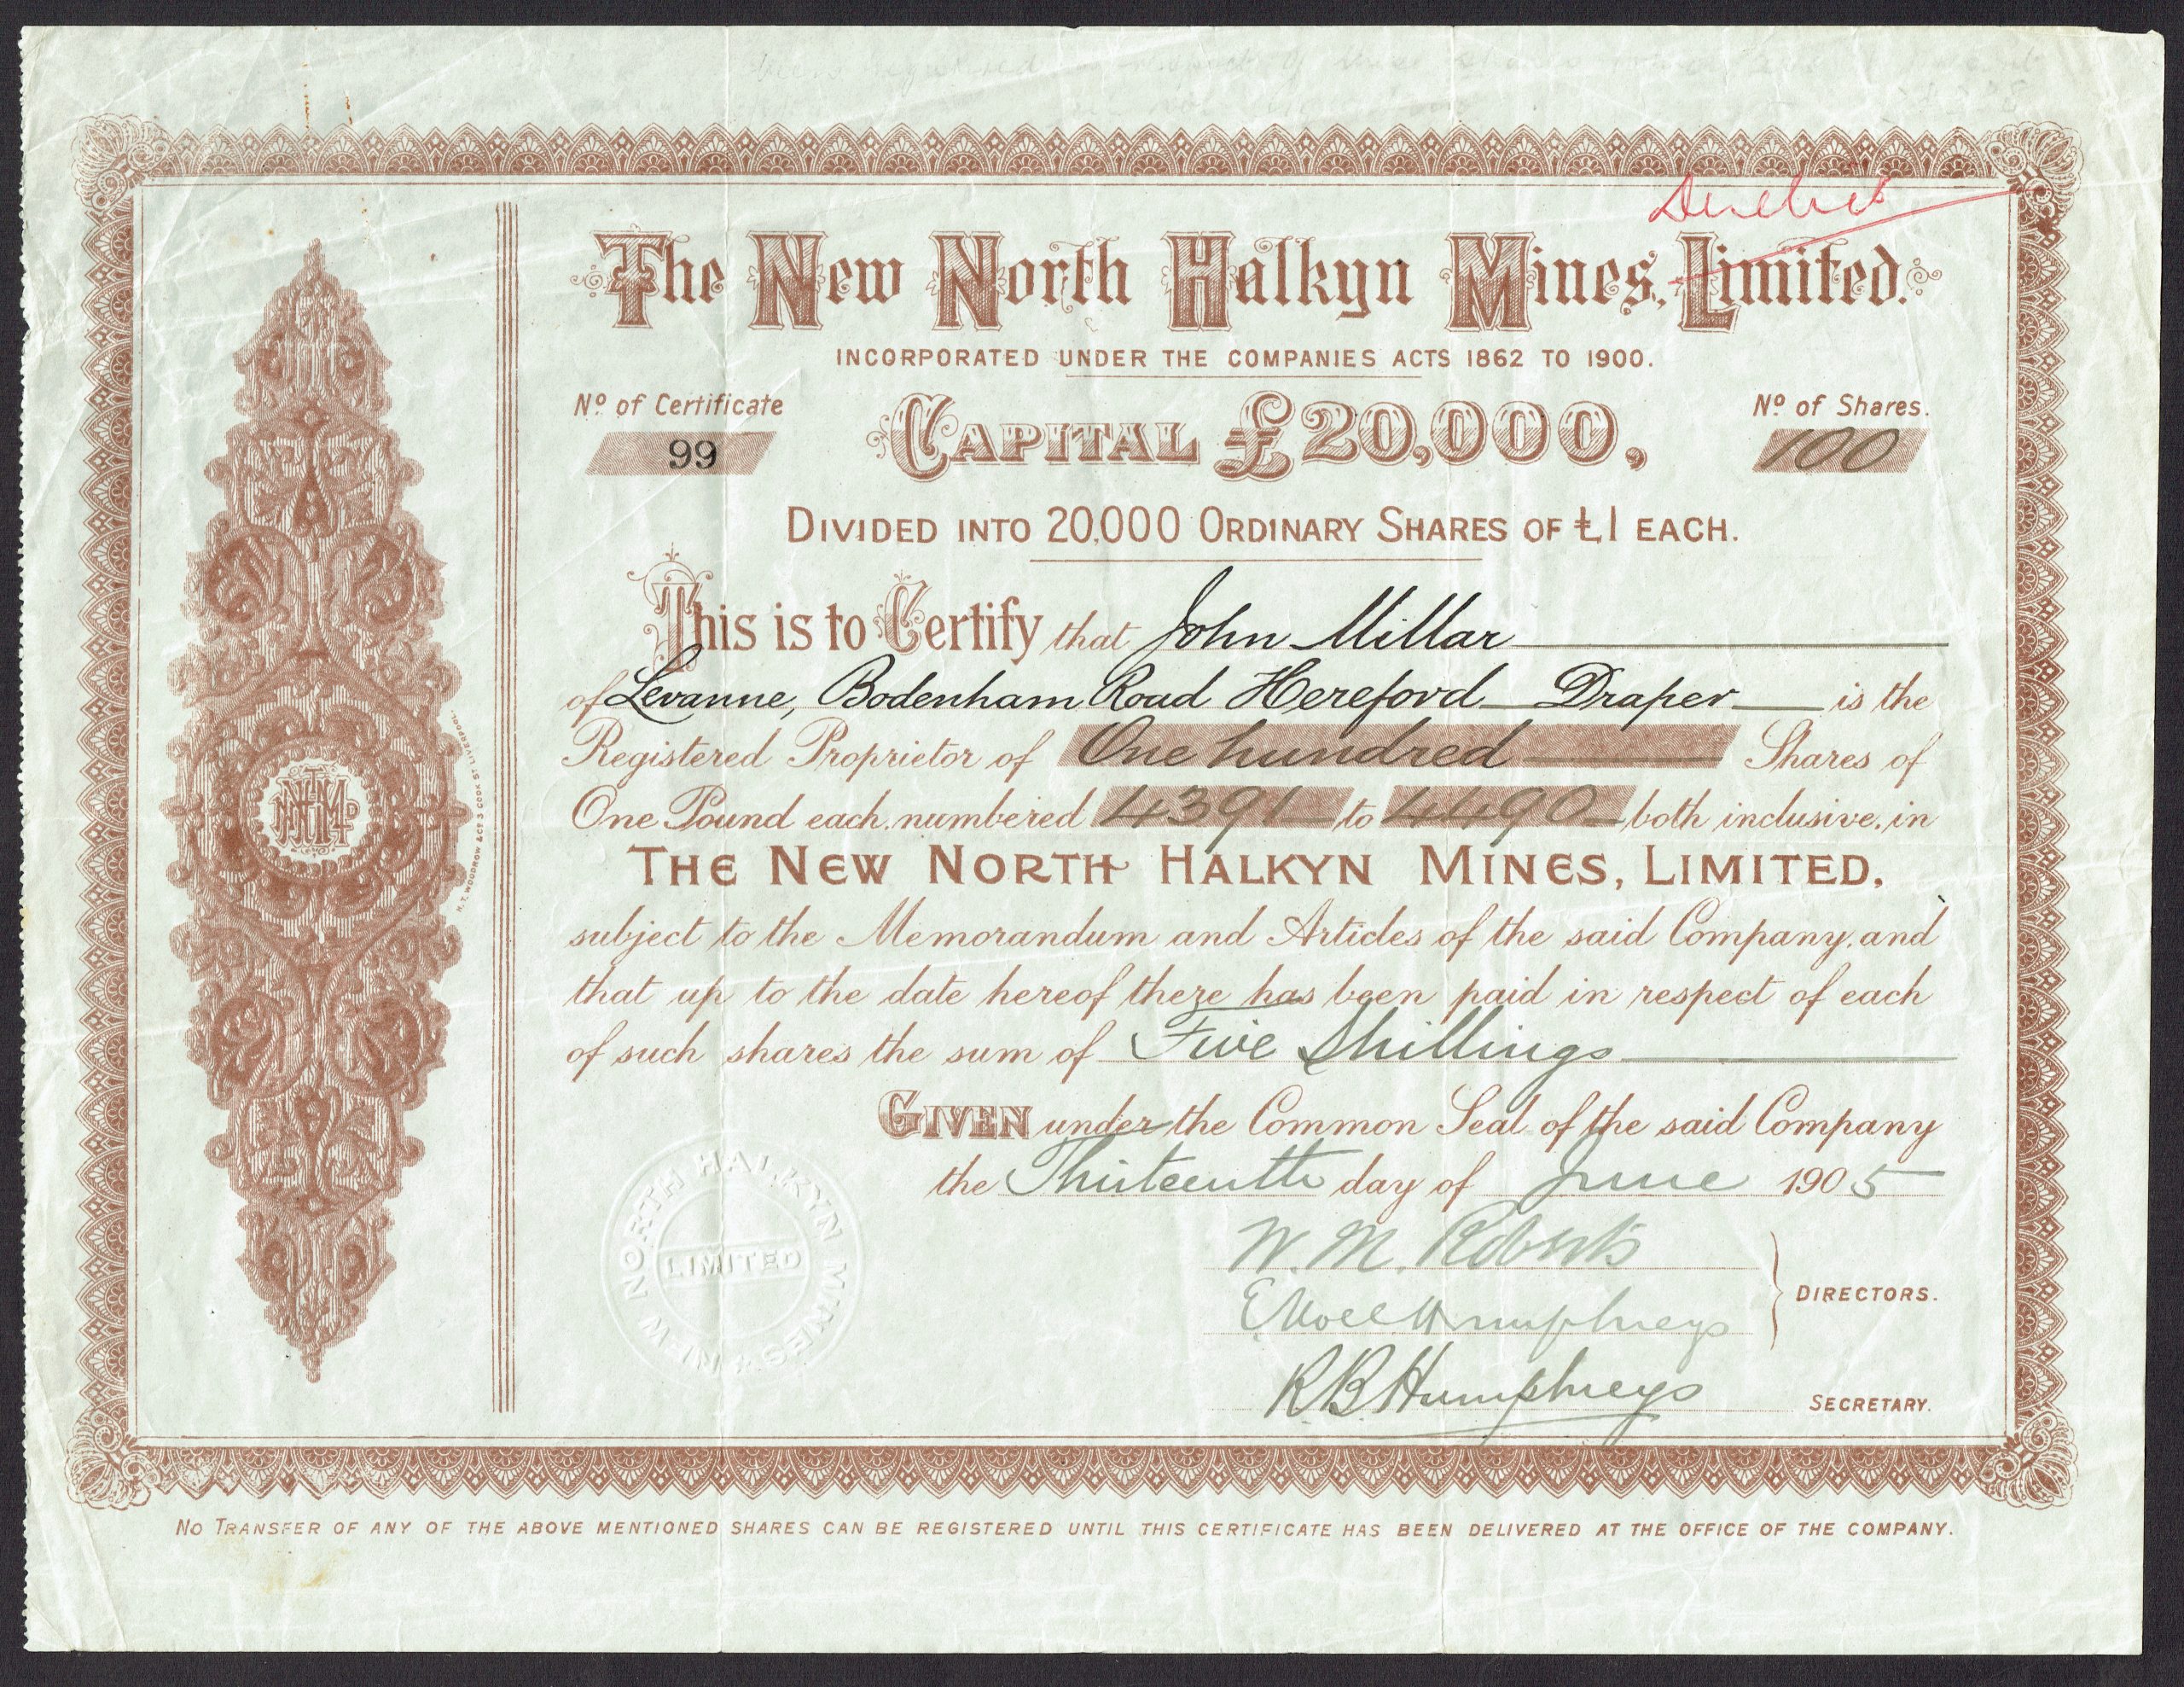 The New North Halkyn Mines, Limited.
INCORPORATED UNDER THE COMPANIES ACTS 1862 TO 1900.
Nº of Certificate
99
CAPITAL £20,000,
Nº of Shares.
100
DIVIDED INTO 20,000 ORDINARY SHARES OF £1 EACH.
This is to Certify that John Millar
of Levanne, Bodenham Road Hereford Draper is the
Registered Proprietor of One hundred Shares of
One Pound each, numbered 4391 to 4490 both inclusive, in
THE NEW NORTH HALKYN MINES, LIMITED,
subject to the Memorandum and Articles of the said Company, and
that up to the date hereof there has been paid in respect of each
of such shares the sum of Five Shillings
GIVEN under the Common Seal of the said Company
the Thirteenth day of June 1905
W. M. Roberts
E Noel Humphreys
DIRECTORS.
R B Humphreys
SECRETARY.
NEW NORTH HALKYN MINES
LIMITED
H. T. WOODROW & Cº 3 COOK ST LIVERPOOL.
NO TRANSFER OF ANY OF THE ABOVE MENTIONED SHARES CAN BE REGISTERED UNTIL THIS CERTIFICATE HAS BEEN DELIVERED AT THE OFFICE OF THE COMPANY.